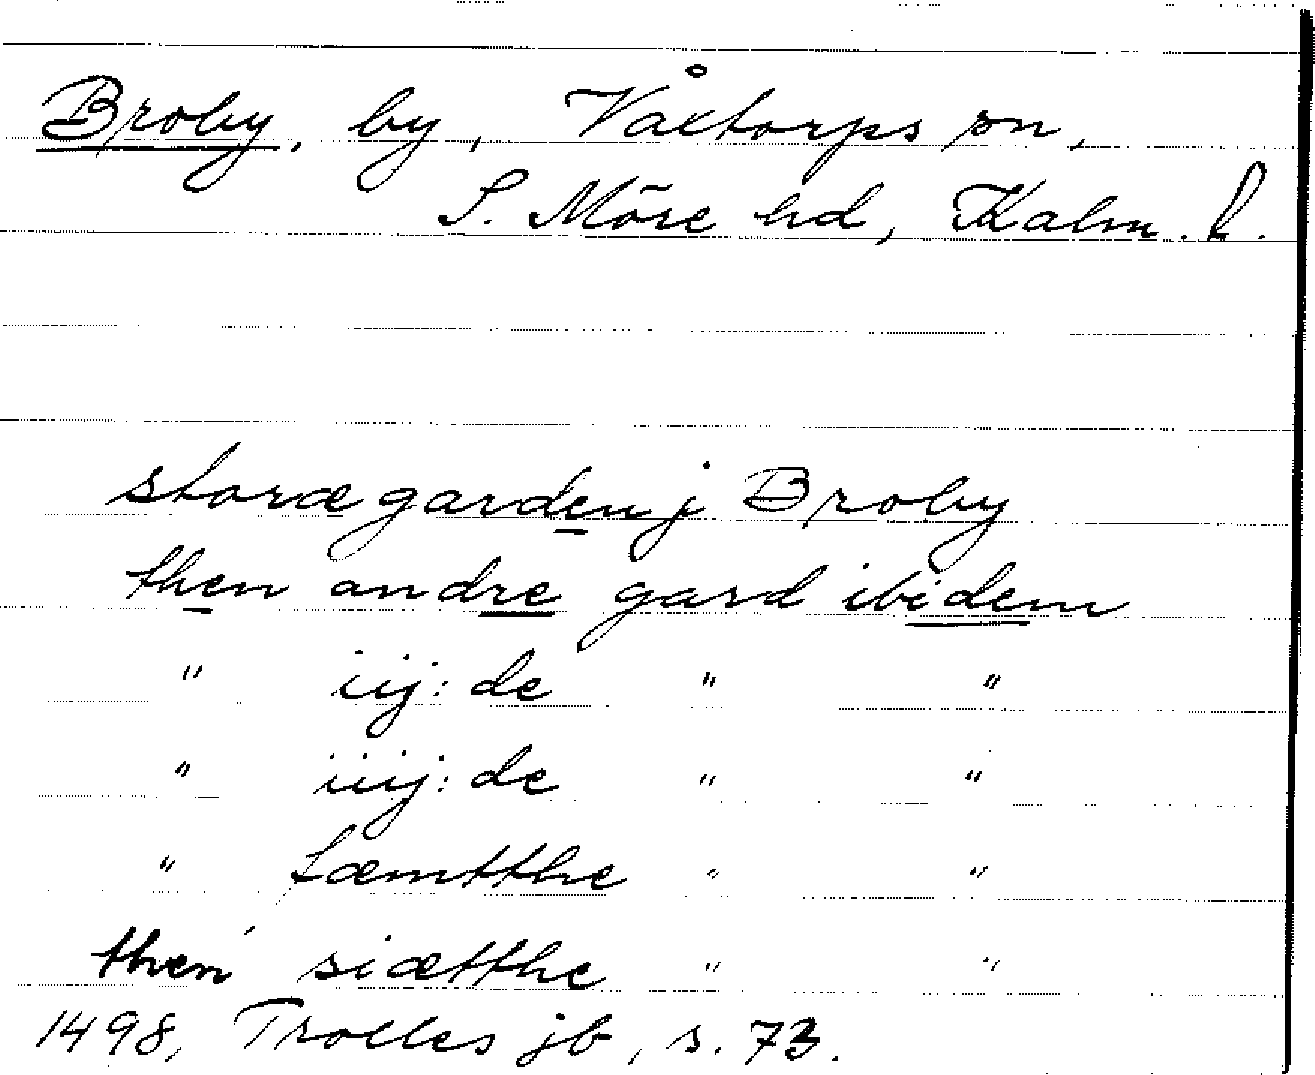 Broby, by, Våxtorps sn,
S. Möre hd, Kalm. l.
storægarden j Broby
then andre gard ibidem
" iij: de " "
" iiij: de " "
" fæmtthe " "
then siætthe " "
1498, Trolles jb, s. 73.